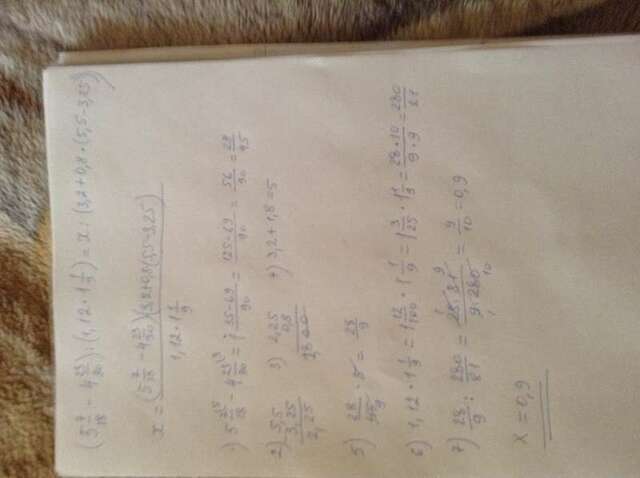 (5 7/18 - 4 23/30) : (1,12 · 1 1/9) = x : (3,2 + 0,8 · (5,5 - 3,25)
x = (5 7/18 - 4 23/30)(3,2+0,8(5,5-3,25) / 1,12 · 1 1/9
1) 5 7/18 - 4 23/30 = 1 35-69/90 = 125-69/90 = 56/90 = 28/45
2) 5,5 - 3,25 = 2,25
3) 2,25 0,8 1,800
4) 3,2 + 1,8 = 5
5) 28/45 · 5 = 28/9
6) 1,12 · 1 1/9 = 1 12/100 · 1 1/9 = 1 3/25 · 1 1/9 = 28 · 10/9 · 9 = 280/81
7) 28/9 : 280/81 = 28 · 81/9 · 280 = 9/10 = 0,9
x = 0,9